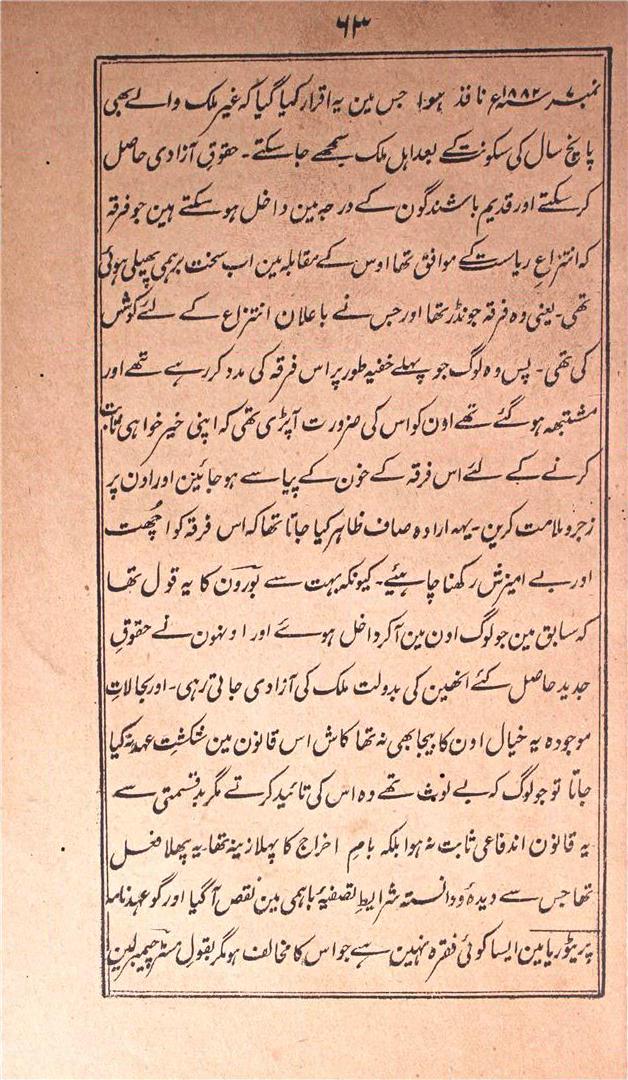 ۶۳
نمبر ۷ سنہ ۱۸۸۲ء نافذ ہوا جس مین یہ اقرار کیا گیا کہ غیر ملک والے بھی
پانچ سال کی سکونت کے بعد اہل ملک سمجھے جا سکتے۔ حقوق آزادی حاصل
کر سکتے اور قدیم باشندگون کے درجہ مین داخل ہو سکتے ہین جو فرقہ
کہ انتزاعِ ریاست کے موافق تھا اوس کے مقابلہ مین اب سخت برہمی پھیلی ہوئی
تھی۔ یعنی وہ فرقہ جو نڈر تھا اور جس نے باعلان انتزاع کے لئے کوشش
کی تھی۔ پس وہ لوگ جو پہلے خفیہ طور پر اس فرقہ کی مدد کر رہے تھے اور
مشتبھہ ہو گئے تھے اون کو اس کی ضرورت آپڑی تھی کہ اپنی خیر خواہی ثابت
کرنے کے لئے اس فرقہ کے خون کے پیاسے ہو جائین اور اون پر
زجر و ملامت کرین۔ یہہ ارادہ صاف ظاہر کیا جاتا تھا کہ اس فرقہ کو اچھت
اور بے امیزش رکھنا چاہیئے۔ کیونکہ بہت سے بورون کا یہ قول تھا
کہ سابق مین جو لوگ اون مین آکر داخل ہوئے اور اونہون نے حقوقِ
جدید حاصل کئے انھین کی بدولت ملک کی آزادی جاتی رہی۔ اور بحالاتِ
موجودہ یہ خیال اون کا بیجا بھی نہ تھا کاش اس قانون مین شکستِ عہد نہ کیا
جاتا تو جو لوگ کہ بے لوث تھے وہ اس کی تائید کرتے مگر بدقسمتی سے
یہ قانون اندفاعی ثابت نہ ہوا بلکہ بامِ اخراج کا پہلا زینہ تھا۔ یہ پھلا فعل
تھا جس سے دیدہ و دانستہ شرایطِ تصفیۂ باہمی مین نقص آگیا اور گو عہد نامہ
پریٹوریا مین ایسا کوئی فقرہ نہین ہے جو اس کا مخالف ہو مگر بقول مسٹر چیمبرلین